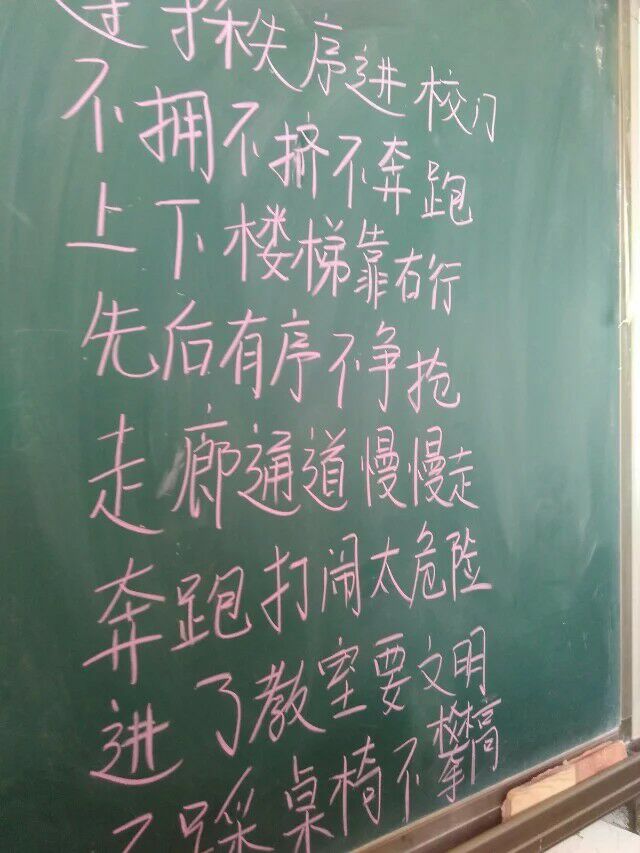 秩序进校门
不拥不挤不奔跑
上下楼梯靠右行
先后有序不争抢
走廊通道慢慢走
奔跑打闹太危险
进了教室要文明
不踩桌椅不攀高